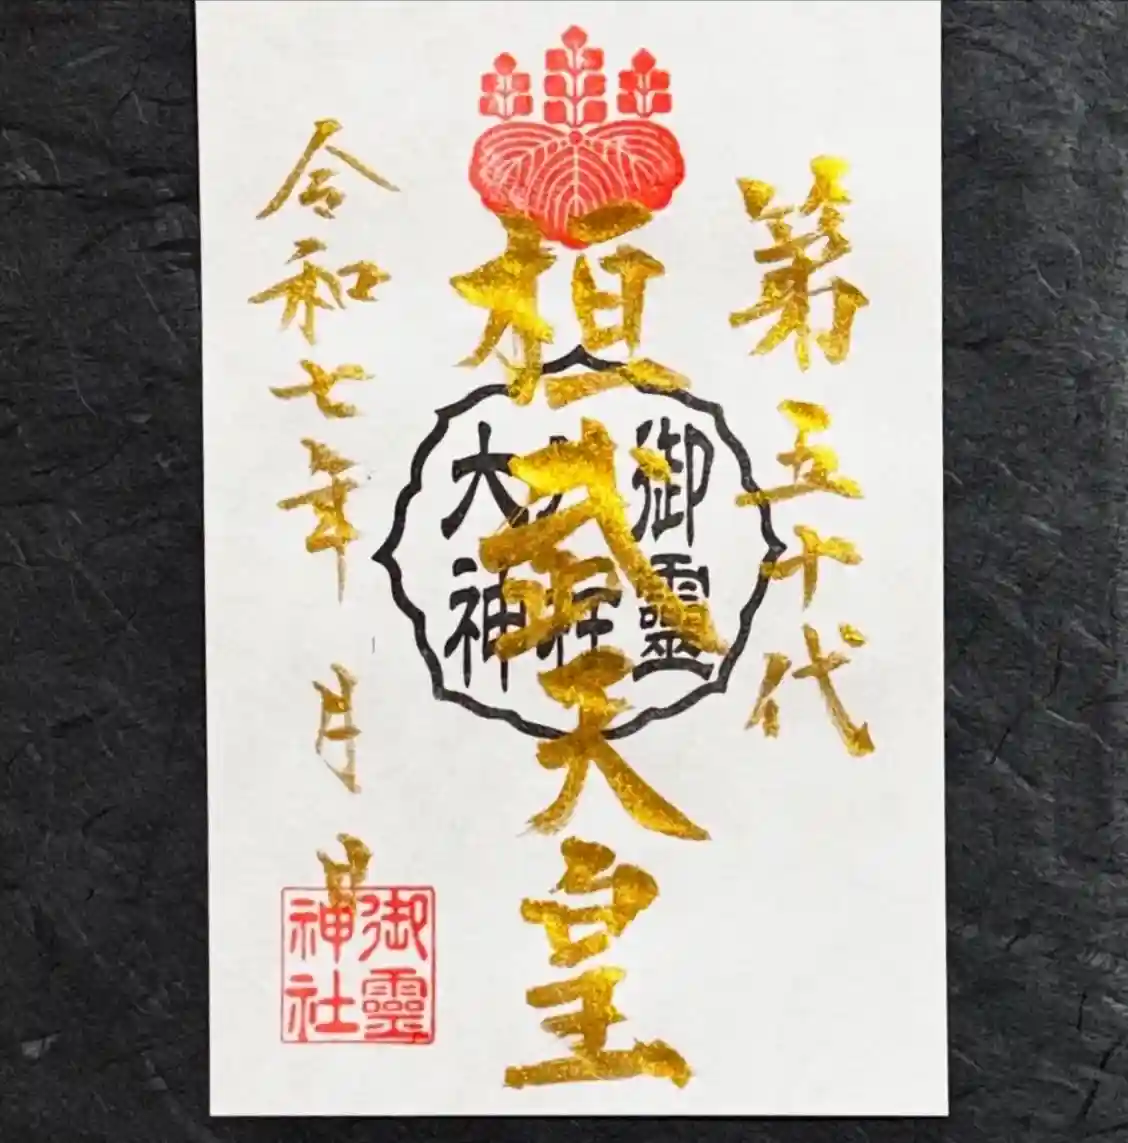 第五十代
桓武天皇
令和七年 月 日
御靈
大神
御靈
神社